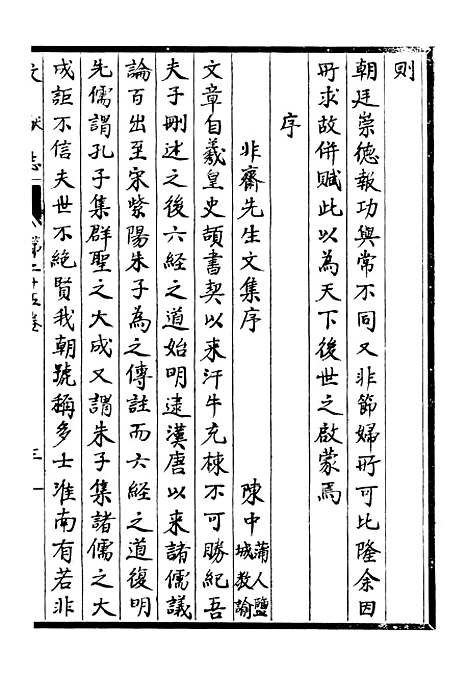 則
朝廷崇德報功與常不同又非節婦所可比隆余因
所求故併賦此以為天下後世之啟蒙焉
序
非齋先生文集序 陳中 莆人鹽城教諭
文章自羲皇史頡書契以來汗牛充棟不可勝紀吾
夫子刪述之後六經之道始明逮漢唐以來諸儒議
論百出至宋紫陽朱子為之傳註而六經之道復明
先儒謂孔子集群聖之大成又謂朱子集諸儒之大
成詎不信夫世不絕賢我朝號稱多士淮南有若非
文獻志 第二十五卷 三一